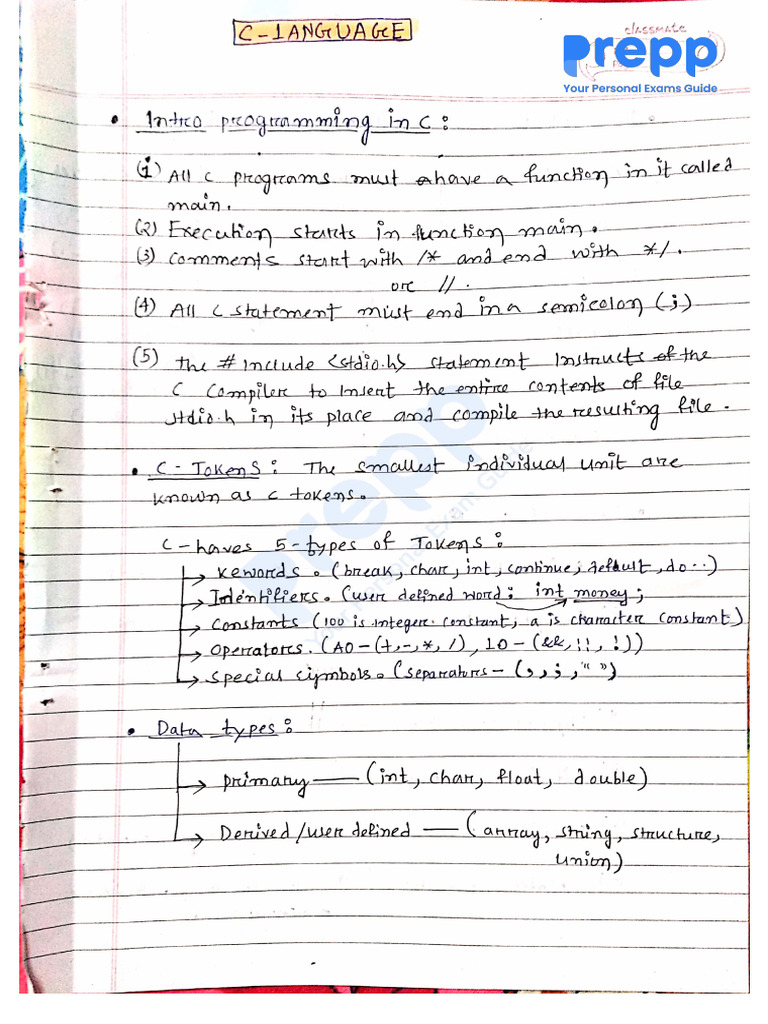 C-LANGUAGE
classmate
Prepp
Your Personal Exams Guide
• Intro programming in C:
(1) All C programs must have a function in it called
main.
(2) Execution starts in function main.
(3) comments start with /* and end with */.
or //.
(4) All C statement must end in a semicolon (;)
(5) The #include <stdio.h> statement Instructs of the
C Compiler to Insert the entire contents of file
stdio.h in its place and compile the resulting file.
• C-Tokens: The smallest individual unit are
known as C tokens.
C-haves 5-types of Tokens:
→ kewords. (break, char, int, continue, default, do..)
→ Identifiers. (user defined word: int money;
→ Constants (100 is integer constant, a is character constant)
→ Operators. (AO-(+,-,*,/), LO-(&&,!!,!))
→ Special symbols. (separators-(,,;,"")
• Data types:
→ primary — (int, char, float, double)
→ Derived/user defined — (array, string, structure,
union)
prepp
Your Personal Exam Guide